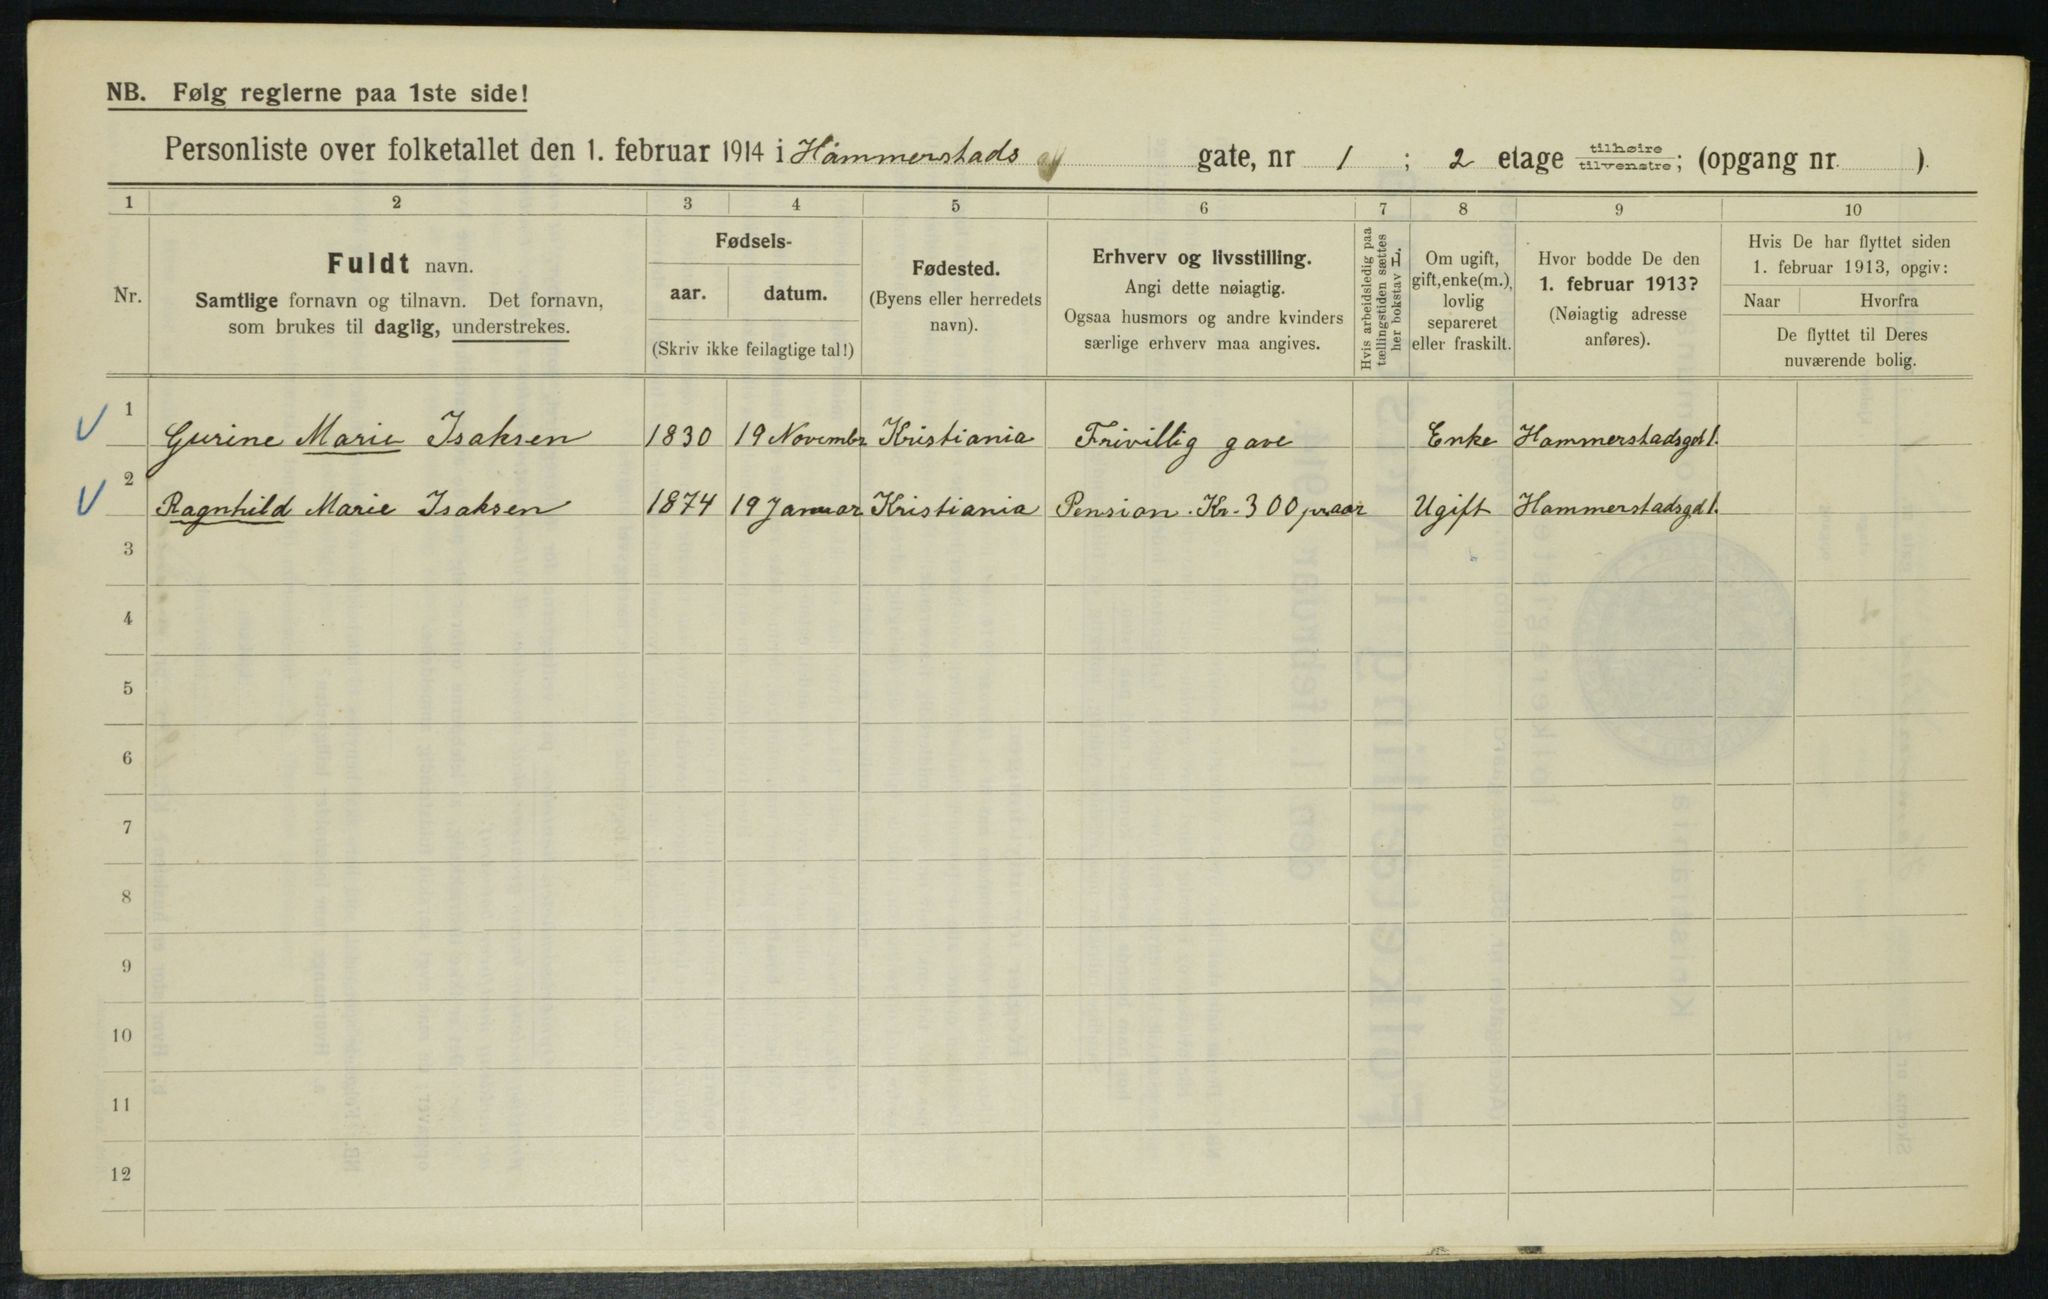 NB. Følg reglerne paa 1ste side!
Personliste over folketallet den 1. februar 1914 i Hammerstads gate, nr 1 ; 2 etage tilhøire tilvenstre; (opgang nr. ).
1 2 3 4 5 6 7 8 9 10
Nr.
Fuldt navn.
Samtlige fornavn og tilnavn. Det fornavn,
som brukes til daglig, understrekes.
Fødsels-
aar. datum.
(Skriv ikke feilagtige tal!)
Fødested.
(Byens eller herredets
navn).
Erhverv og livsstilling.
Angi dette nøiagtig.
Ogsaa husmors og andre kvinders
særlige erhverv maa angives.
Hvis arbeidsledig paa
tællingstiden sættes
her bokstav L.
Om ugift,
gift, enke(m.),
lovlig
separeret
eller fraskilt.
Hvor bodde De den
1. februar 1913?
(Nøiagtig adresse
anføres).
Hvis De har flyttet siden
1. februar 1913, opgiv:
Naar Hvorfra
De flyttet til Deres
nuværende bolig.
1 Gurine Marie Isaksen 1830 19 Novembr Kristiania Frivillig gave Enke Hammerstadsgd 1.
2 Ragnhild Marie Isaksen 1874 19 Januar Kristiania Pension. Kr. 300 pr aar Ugift Hammerstadsgd 1.
3
4
5
6
7
8
9
10
11
12